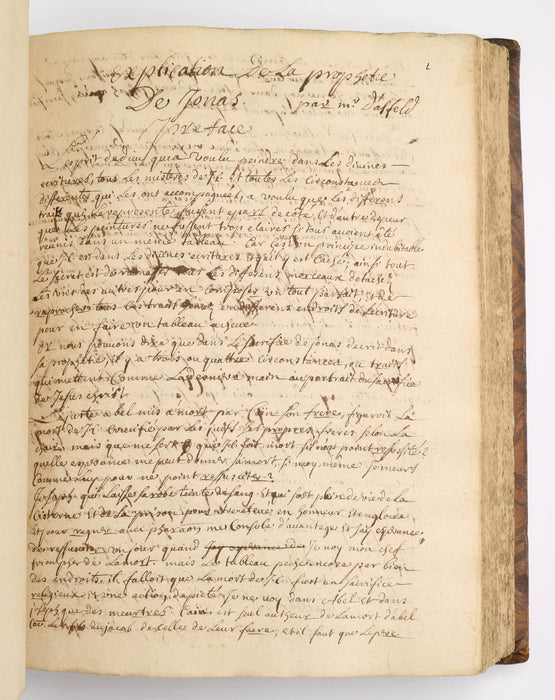 explication De La prophetie
De Jonas. par mr. D'asfeld
preface
L'esprit de dieu qui a voulu peindre dans Les divines
ecritures, tous Les misteres de JC et toutes Les circonstances
differentes qui Les ont accompagnées, a voulu que Les differens
traits qui Le representent fussent a part de coté et d'autre de peur
que ses peintures ne fussent trop claires si tous avoient été
reunis dans un meme tableau. Car c'est un principe indubitable
que JC est dans Les divines ecritures et qu'il y est Caché. ainsi tout
Le secret est de ramasser Les differens morceaux detachés
Les uns des autres pour en composer un tout parfait, et de
raprocher tous ces traits en differens endroits de L'ecriture
pour en faire un tableau achevé
or nous pouvons dire que dans Le sacrifice de jonas decrit dans
sa prophetie, il y a trois ou quatre circonstances, ou traits
qui mettent comme La derniere main au portrait du sacrifice
de Jesus christ
Le juste abel mis a mort par Caïn son frere, figuroit La
mort de JC crucifié par Les juifs ses propres freres selon La
chair. mais que me sert qu'il soit mort s'il n'est point ressuscité?
quelle esperance me peut donner sa mort, si moy meme je meurs
comme Luy pour ne point ressusciter?
joseph qui Laisse sa robe teinte de sang et qui sort plein de vie de La
cisterne et de La prison pour vivre en honneur et en gloire
et pour regner avec pharaon me console d'avantage et j'ay esperance
de ressusciter un jour quand je voy mon chef
triompher de La mort. mais Le tableau peche encore par bien
des endroits. il falloit que La mort de JC fust un sacrifice
religieux et une action de pieté et je ne voy dans Abel et dans
joseph que des meurtres. Caïn est seul autheur de La mort d'abel
de jacob de celle de Leur frere, et il faut que Le pere